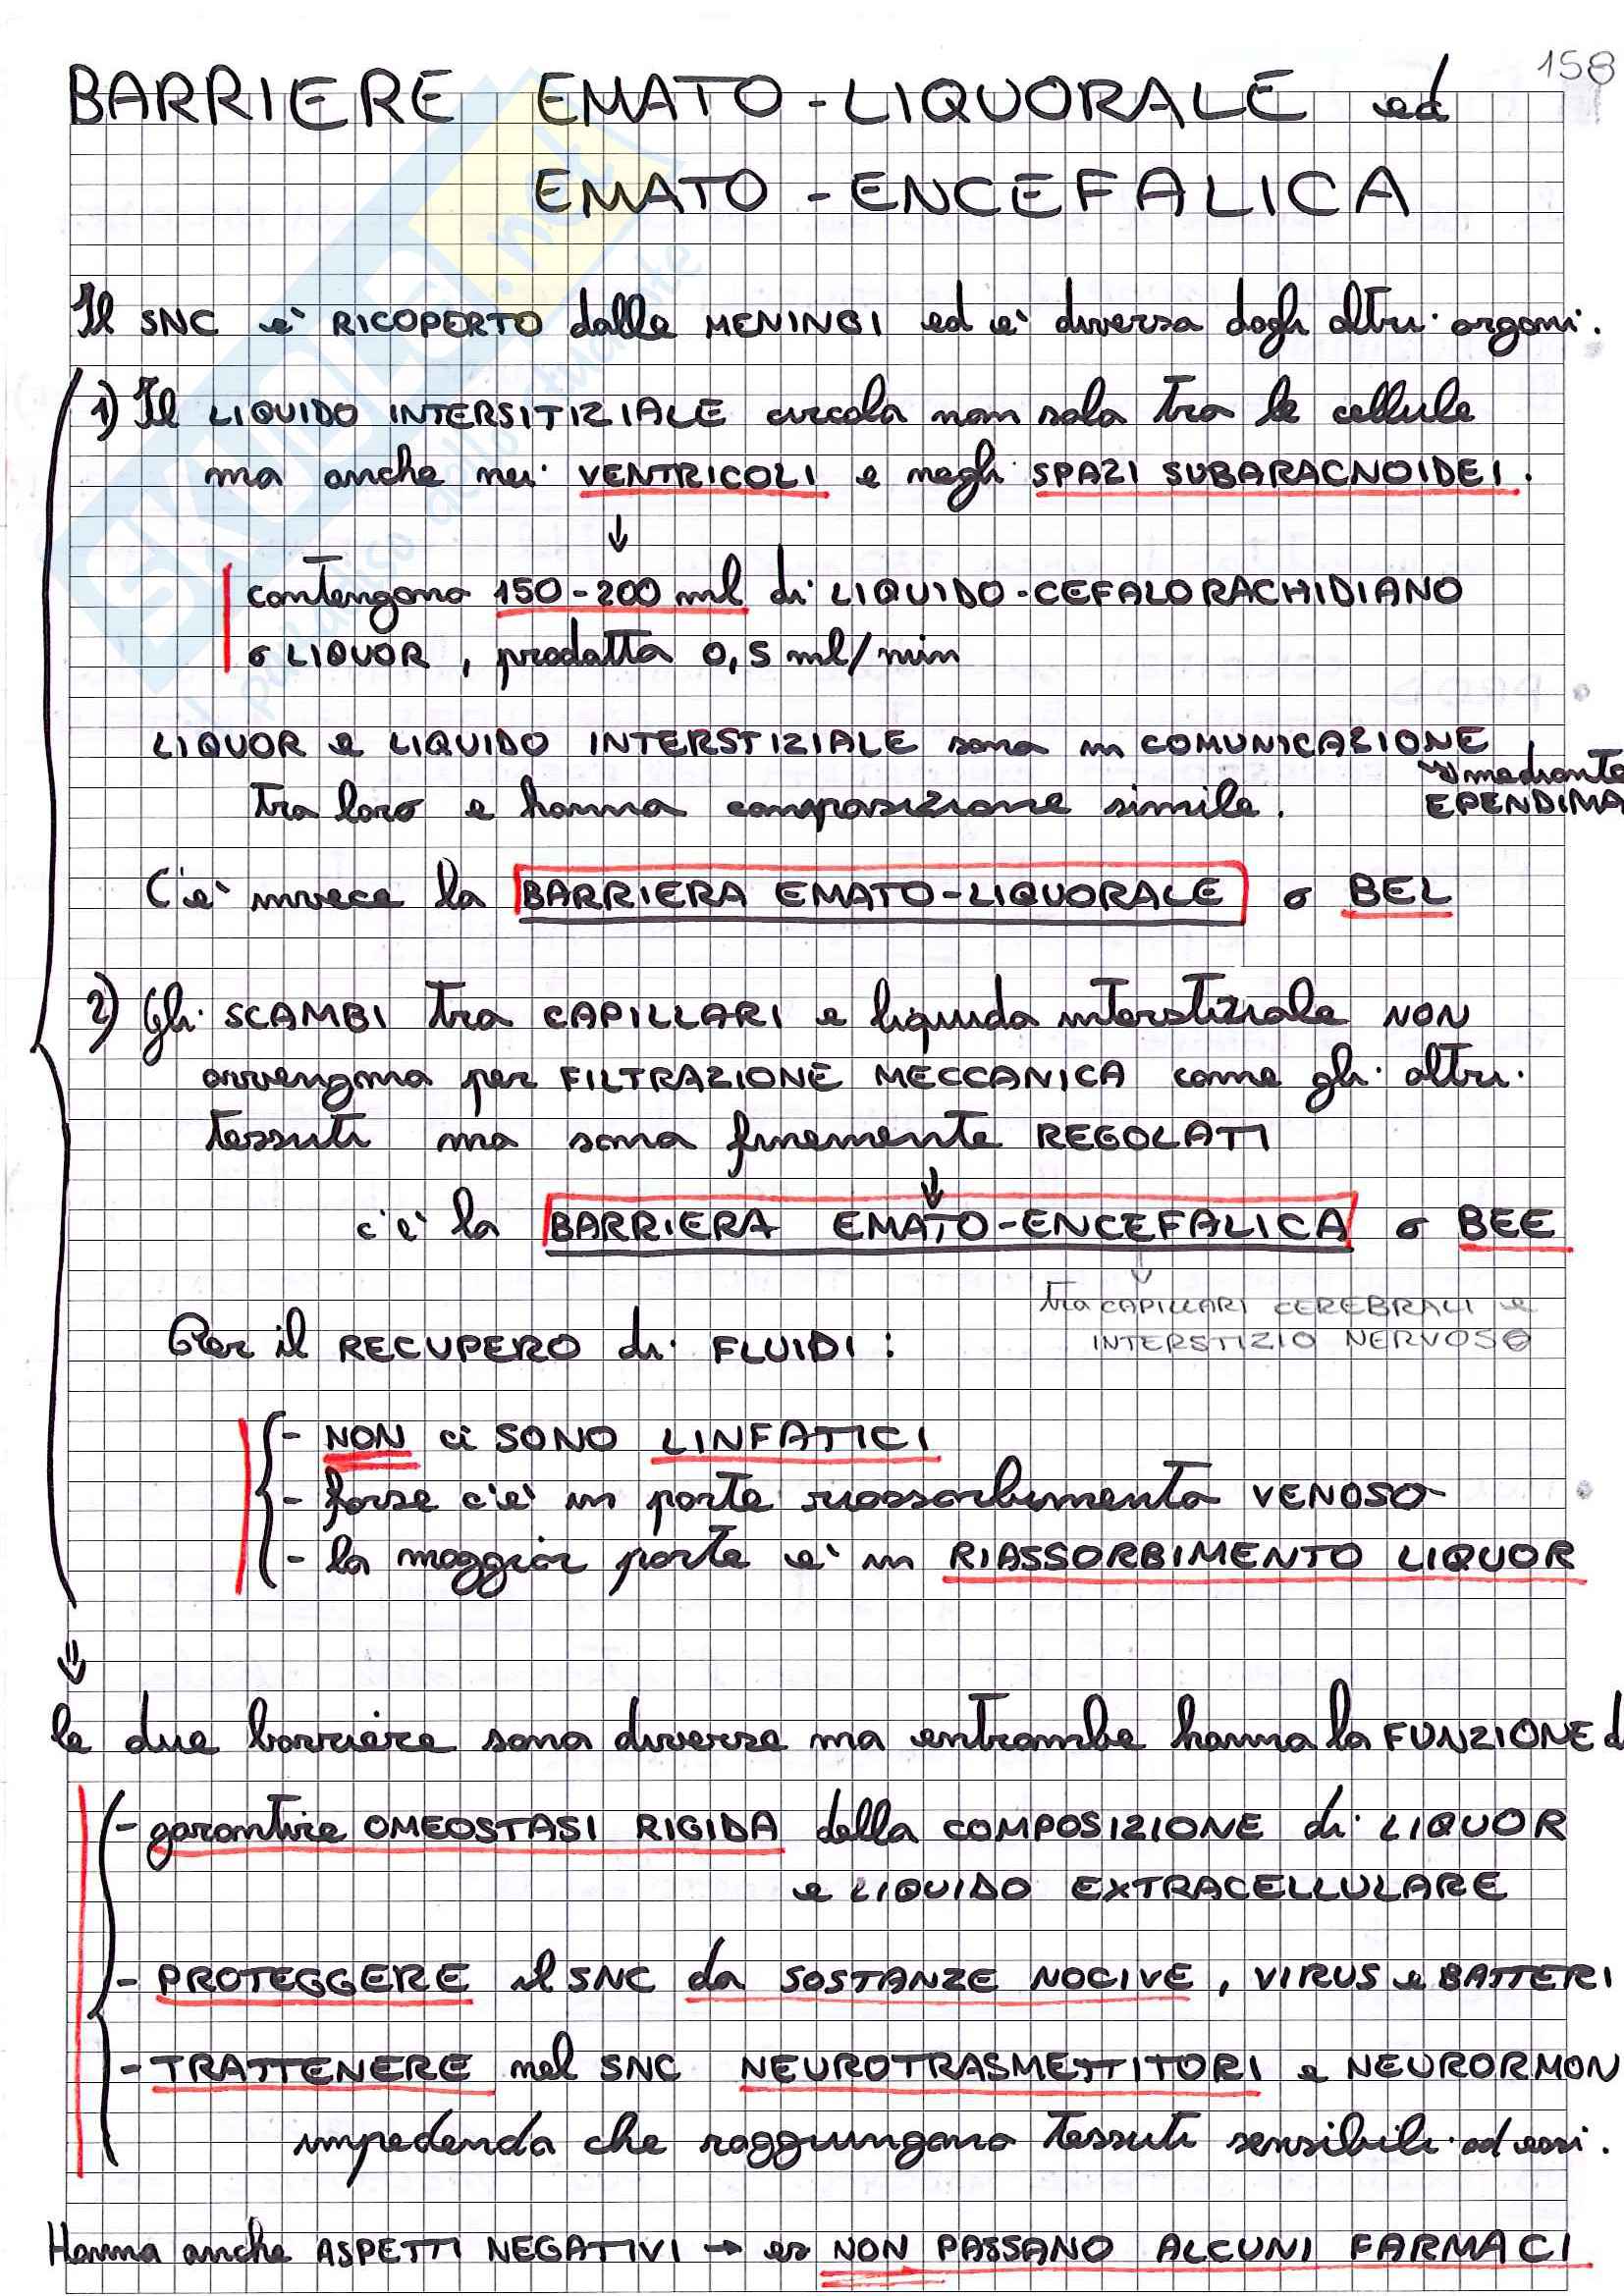 158
BARRIERE EMATO-LIQUORALE ed
EMATO-ENCEFALICA
Il SNC è RICOPERTO dalle MENINGI ed è diverso dagli altri organi.
1) Il LIQUIDO INTERSITIZIALE circola non solo tra le cellule
ma anche nei VENTRICOLI e negli SPAZI SUBARACNOIDEI.
↓
contengono 150-200 ml di LIQUIDO-CEFALORACHIDIANO
o LIQUOR, prodotto 0,5 ml/min
LIQUOR e LIQUIDO INTERSTIZIALE sono in COMUNICAZIONE
↳ mediante
tra loro e hanno composizione simile.
EPENDIMA
C'è invece la BARRIERA EMATO-LIQUORALE o BEL
2) Gli SCAMBI tra CAPILLARI e liquido interstiziale NON
avvengono per FILTRAZIONE MECCANICA come gli altri
tessuti ma sono finemente REGOLATI
↓
c'è la BARRIERA EMATO-ENCEFALICA o BEE
↓
tra CAPILLARI CEREBRALI e
INTERSTIZIO NERVOSO
Per il RECUPERO di FLUIDI:
- NON ci SONO LINFATICI
- forse c'è in parte riassorbimento VENOSO
- la maggior parte è in RIASSORBIMENTO LIQUOR
⇓
le due barriere sono diverse ma entrambe hanno la FUNZIONE d
- garantire OMEOSTASI RIGIDA della COMPOSIZIONE di LIQUOR
e LIQUIDO EXTRACELLULARE
- PROTEGGERE il SNC da SOSTANZE NOCIVE, VIRUS e BATTERI
- TRATTENERE nel SNC NEUROTRASMETTITORI e NEURORMON
impedendo che raggiungano tessuti sensibili ad essi.
Hanno anche ASPETTI NEGATIVI → es NON PASSANO ALCUNI FARMACI
SKUOLA.net
il paradiso dello studente